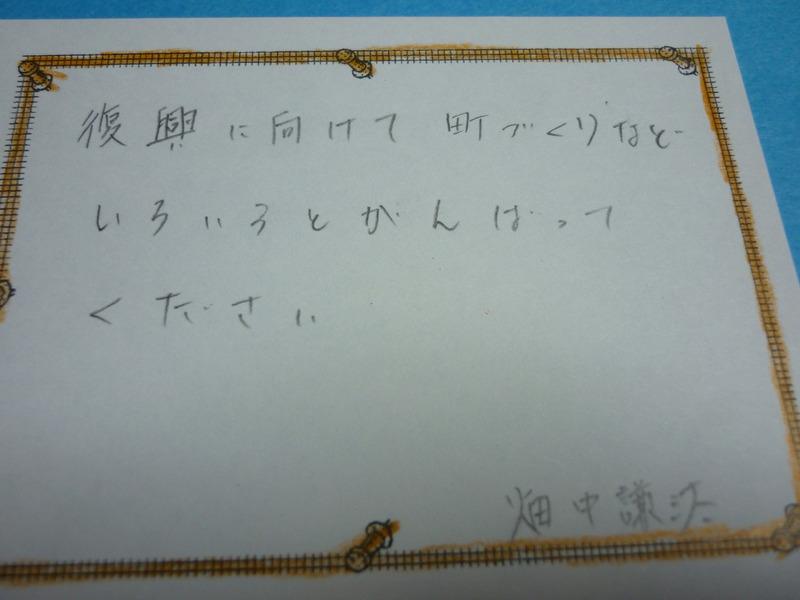 復興に向けて町づくりなど
いろいろとがんばって
ください
畑中謙汰